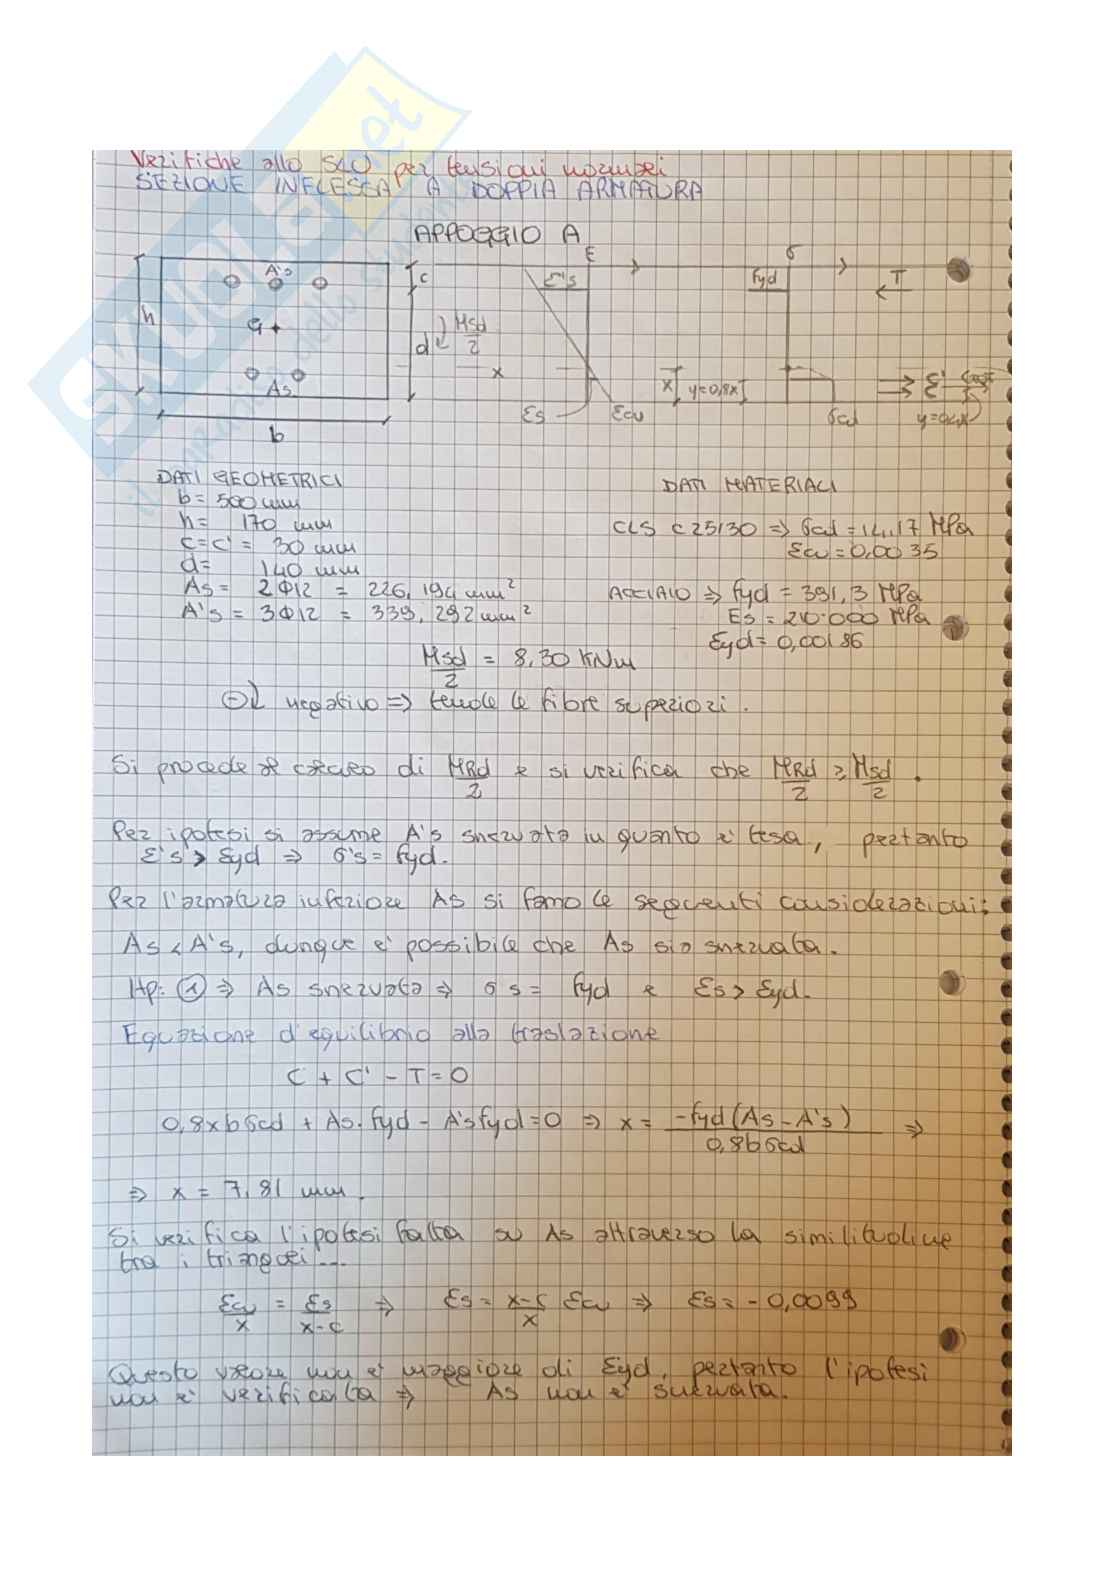 Verifiche allo SLU per tensioni normali
SEZIONE INFLESSA A DOPPIA ARMATURA
APPOGGIO A
A's
h
G
As
b
c
d
Msd/2
x
ε
ε's
εs
εcu
x
y=0,8x
σ
fyd
fcd
T
C'
DATI GEOMETRICI
b = 500 mm
h = 170 mm
c = c' = 30 mm
d = 140 mm
As = 2Φ12 = 226,194 mm²
A's = 3Φ12 = 339,292 mm²
DATI MATERIALI
CLS C25/30 ⇒ fcd = 14,17 MPa
εcu = 0,0035
ACCIAIO ⇒ fyd = 391,3 MPa
Es = 210.000 MPa
εyd = 0,00186
Msd/2 = 8,30 KNm
negativo ⇒ tende le fibre superiori.
Si procede al calcolo di MRd/2 e si verifica che MRd/2 ≥ Msd/2.
Per ipotesi si assume A's snervata in quanto e' tesa, pertanto
ε's > εyd ⇒ σ's = fyd.
Per l'armatura inferiore As si fanno le seguenti considerazioni:
As < A's, dunque e' possibile che As sia snervata.
Hp: ① ⇒ As snervata ⇒ σs = fyd e εs > εyd.
Equazione d'equilibrio alla traslazione
C + C' - T = 0
0,8xb fcd + As · fyd - A's fyd = 0 ⇒ x = -fyd(As - A's) / 0,8b fcd ⇒
⇒ x = 7,81 mm.
Si verifica l'ipotesi fatta su As attraverso la similitudine
tra i triangoli...
εcu/x = εs/x-c ⇒ εs = x-c/x εcu ⇒ εs = -0,0099
Questo valore non e' maggiore di εyd, pertanto l'ipotesi
non e' verificata ⇒ As non e' snervata.